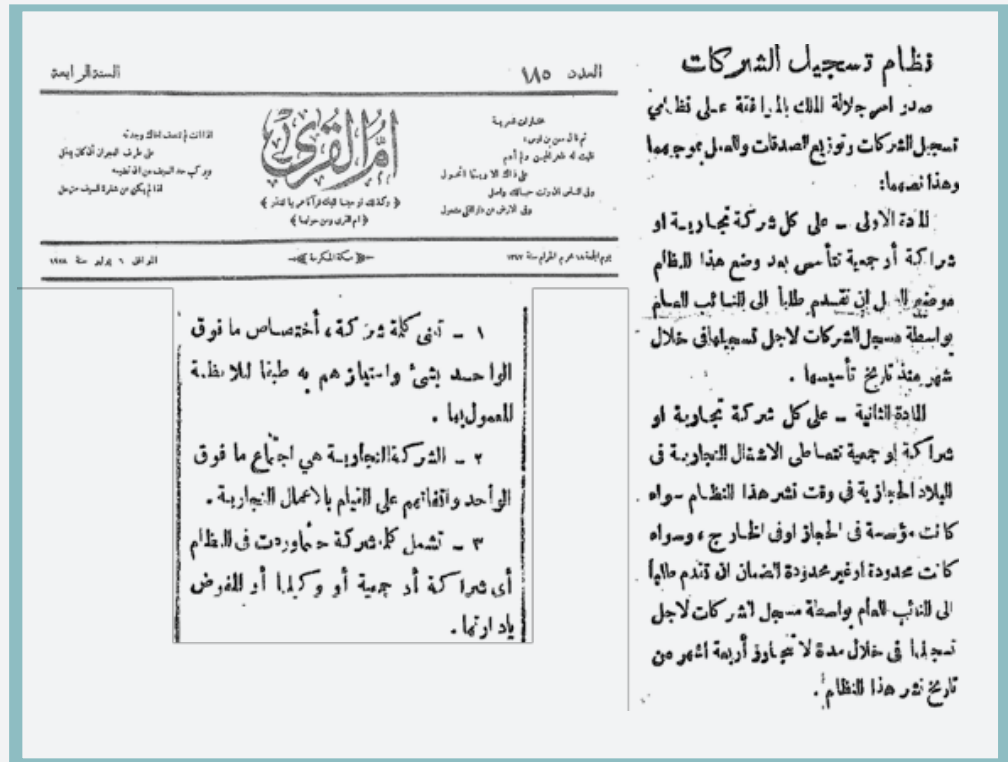 نظام تسجيل الشركات
صدر امر جلالة الملك بالموافقة على نظامي
تسجيل الشركات وتوزيع الصدقات والعمل بموجبهما
وهذا نصهما:
المادة الاولى – على كل شركة تجارية او
شراكة أو جمعية تتأسس بعد وضع هذا النظام
موضع العمل ان تقدم طلباً الى النائب العام
بواسطة مسجل الشركات لاجل تسجيلها في خلال
شهر منذ تاريخ تأسيسها .
المادة الثانية – على كل شركة تجارية او
شراكة او جمعية تتعاطى الاشغال التجارية فى
البلاد الحجازية في وقت نشر هذا النظام سواء
كانت مؤسسة فى الحجاز اوفى الخارج ، وسواء
كانت محدودة اوغير محدودة الضمان ان تقدم طلباً
الى النائب العام بواسطة مسجل الشركات لاجل
تسجيلها فى خلال مدة لا تتجاوز أربعة اشهر من
تاريخ نشر هذا النظام .
العدد ١٨٥
السنة الرابعة
أم القرى
﴿ وكذلك اوحينا اليك قرآنا عربيا لتنذر ﴾
﴿ ام القرى ومن حولها ﴾
مختارات شعرية
على طرف الهجران ان كان يعقل
وفى الارض عن دار القلى متحول
مكة المكرمة
الموافق ٦ يوليو سنة ١٩٢٨
١ – تعنى كلمة شركة ، أختصاص ما فوق
الواحد بشئ وامتيازهم به طبقا للانظمة
المعمول بها .
٢ – الشركة التجارية هي اجتماع ما فوق
الواحد واتفاقهم على القيام بالاعمال التجارية .
٣ – تشمل كلمة شركة حيثما وردت فى النظام
أى شراكة أو جمعية أو وكيلها أو المفوض
بادارتها .